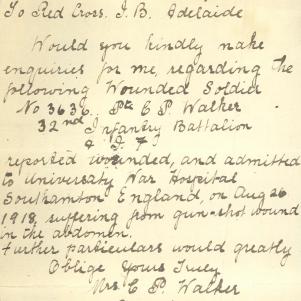 To Red Cross. I. B. Adelaide
Would you kindly make
enquiries for me, regarding the
following Wounded Soldier
No 3636. Pte C P. Walker
32nd Infantry Battalion
A I F
reported wounded, and admitted
to University War Hospital
Southamton England, on Aug 26
1918, suffering from gun-shot wound
in the abdomen.
further particulars would greatly
Oblige Yours Truly
Mrs C P. Walker